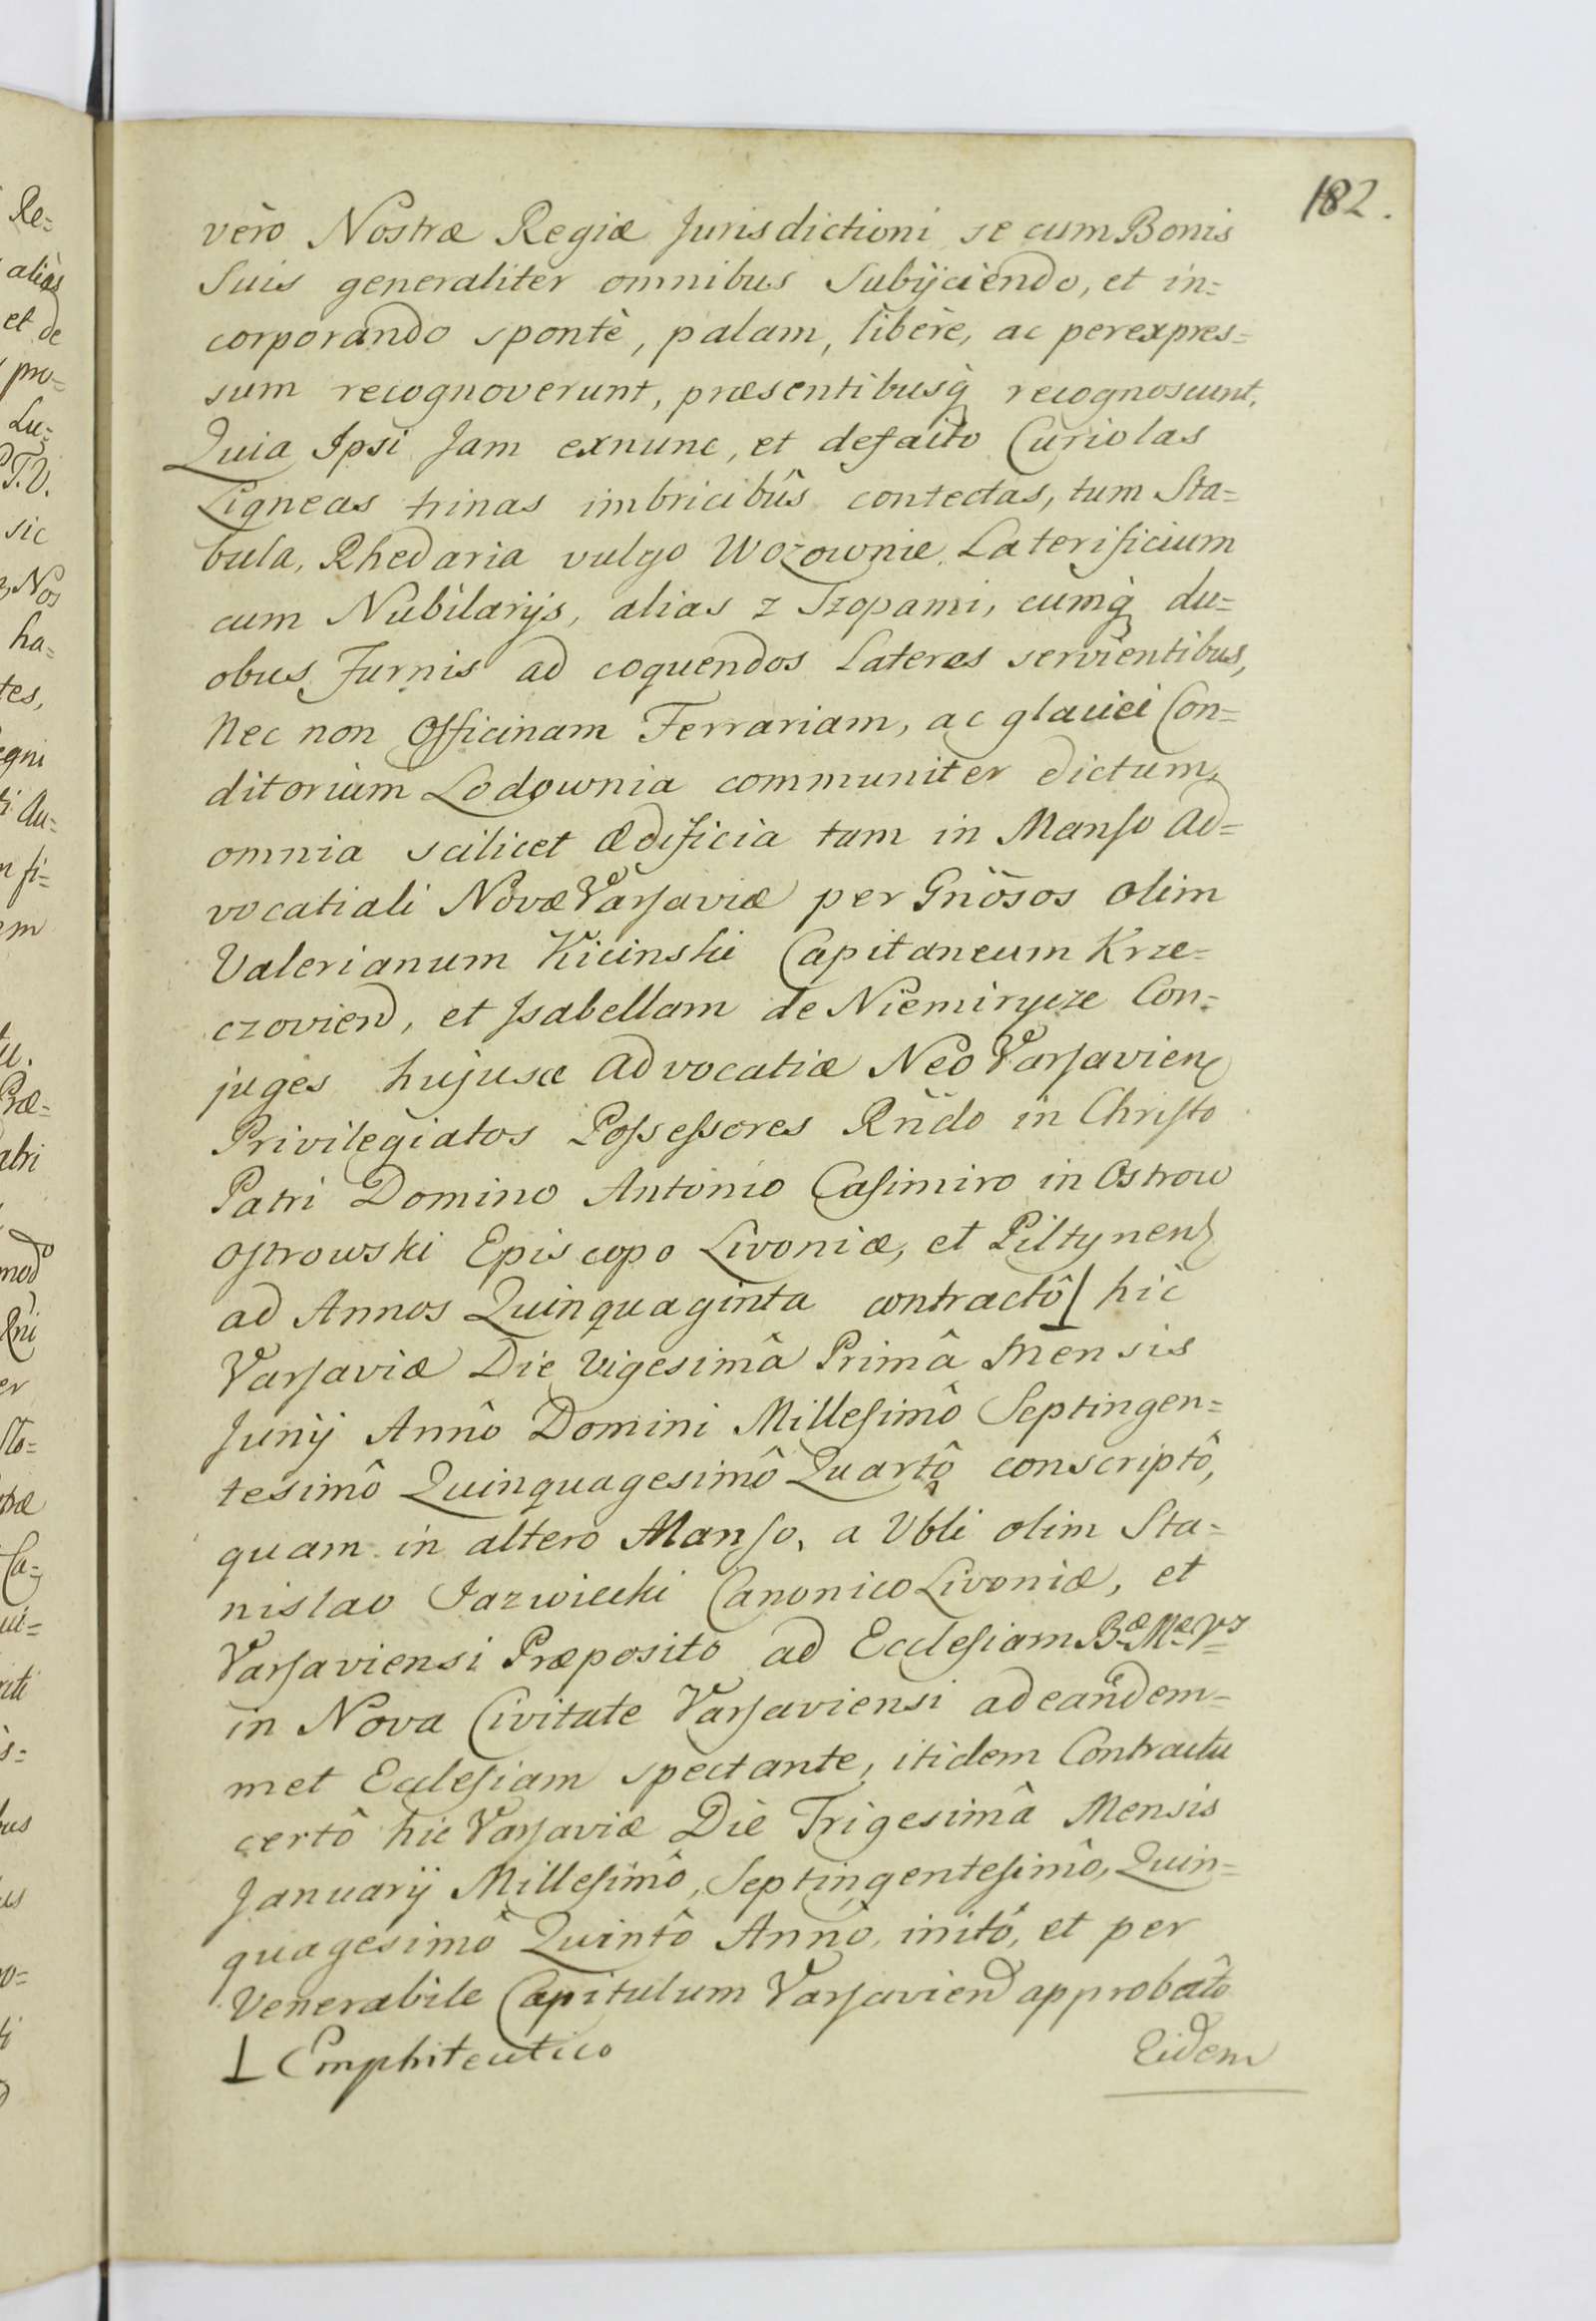 182.
verò Nostræ Regiæ Jurisdictioni se cum Bonis
Suis generaliter omnibus Subijciendo, et in=
corporando spontè, palam, liberè, ac perexpres=
sum recognoverunt, præsentibusq́ recognoscunt.
Quia Ipsi Jam exnunc, et defacto Curiolas
Ligneas trinas imbricibûs contectas, tum Sta=
bula, Rhedaria vulgo Wozownie, Laterificium
cum Nubilarijs, alias z Szopami, cumq́ du=
obus Furnis ad coquendos Lateres servientibus,
Nec non Officinam Ferrariam, ac glaciei Con=
ditorium Lodownia communiter dictum,
omnia scilicet Ædificia tam in Manso Ad=
vocatiali Novæ Varsaviæ per Gnosos olim
Valerianum Kicinski Capitaneum Krze=
czovien, et Isabellam de Niemirycze Con=
juges hujusce Advocatiæ Neo Varsavien
Privilegiatos Possessores Rndo in Christo
Patri Domino Antonio Casimiro in Ostrow
Ostrowski Episcopo Livoniæ, et Piltynen
ad Annos Quinquaginta contractô ⊥ hic
Varsaviæ Die Vigesimâ Primâ Mensis
Junij Annô Domini Millesimô Septingen=
tesimô Quinquagesimô Quartô conscriptô,
quam in altero Manso, a Vbli olim Sta=
nislao Jazwiecki Canonico Livoniæ, et
Varsaviensi Præposito ad Ecclesiam Bæ Mæ Vs
in Nova Civitate Varsaviensi ad eandem=
met Ecclesiam spectante, itidem Contractu
certô hic Varsaviæ Die Trigesimâ Mensis
Januarij Millesimô, Septingentesimô, Quin=
quagesimô Quintô Annô, initô, et per
Venerabile Capitulum Varsavien approbatô
⊥ Emphiteutico
Eidem